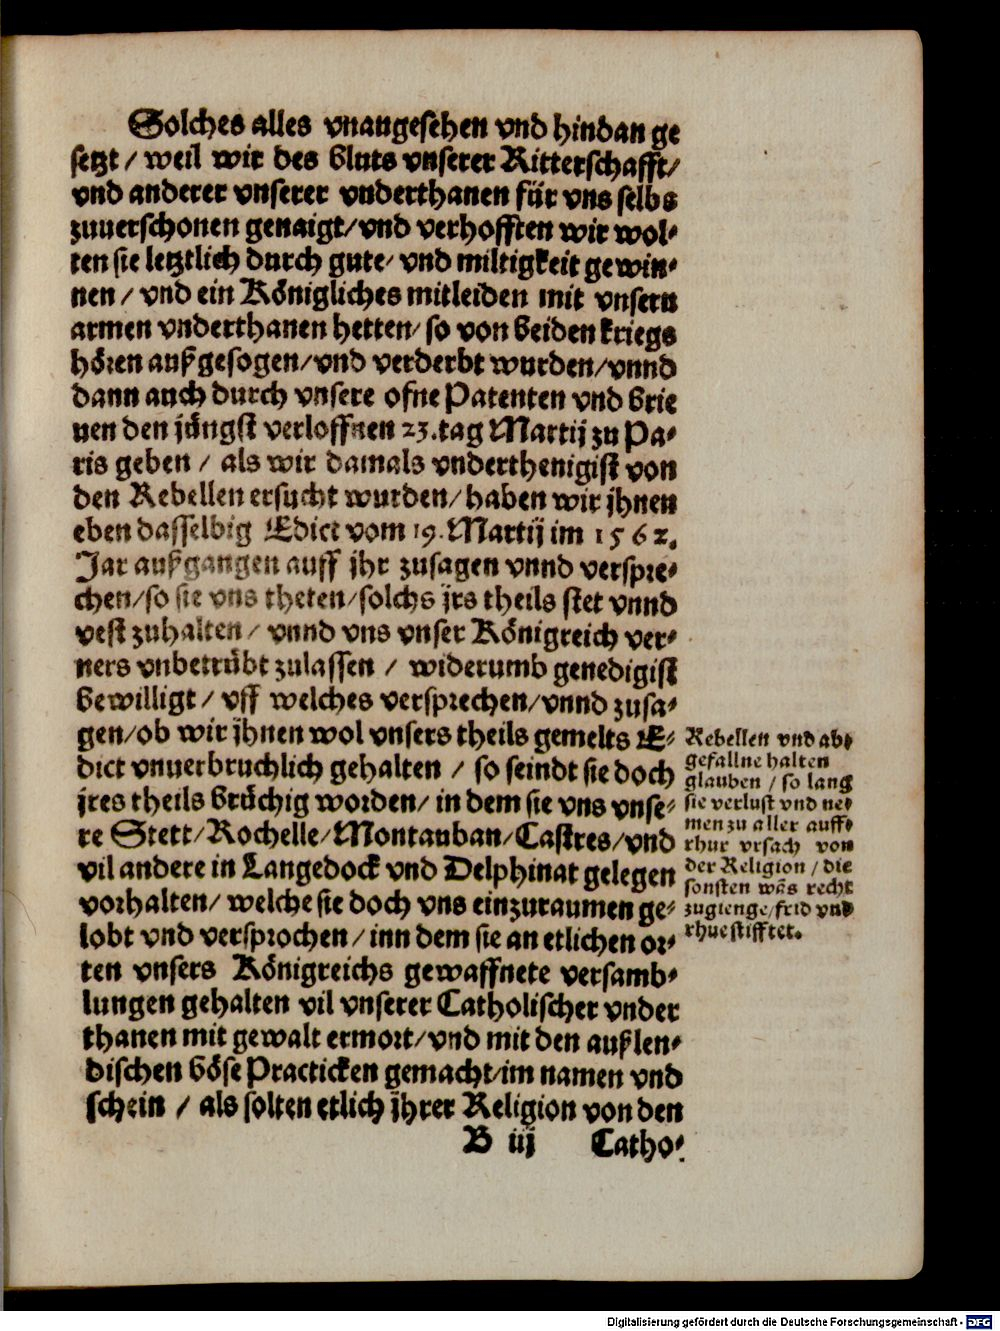 Solches alles vnangesehen vnd hindan ge
setzt / weil wir des bluts vnserer Ritterschafft/
vnd anderer vnserer vnderthanen für vns selbs
zuuerschonen genaigt/vnd verhofften wir wol-
ten sie letztlich durch gute/ vnd miltigkeit gewin-
nen / vnd ein Königliches mitleiden mit vnsern
armen vnderthanen hetten/ so von beiden kriegs
hören außgesogen/vnd verderbt wurden/vnnd
dann auch durch vnsere ofne Patenten vnd brie
uen den jüngst verloffnen 23.tag Martij zu Pa-
ris geben / als wir damals vnderthenigist von
den Rebellen ersucht wurden/haben wir jhnen
eben dasselbig Edict vom 19. Martij im 1562.
Jar außgangen auff jhr zusagen vnnd verspre-
chen/so sie vns theten/solchs jrs theils stet vnnd
vest zuhalten / vnnd vns vnser Königreich ver-
ners vnbetrübt zulassen / widerumb genedigist
bewilligt / vff welches versprechen/vnnd zusa-
gen/ob wir jhnen wol vnsers theils gemelts E-
dict vnuerbruchlich gehalten / so seindt sie doch
jres theils brüchig worden/ in dem sie vns vnse-
re Stett/Rochelle/Montauban/Castres/vnd
vil andere in Langedock vnd Delphinat gelegen
vorhalten/ welche sie doch vns einzuraumen ge-
lobt vnd versprochen/inn dem sie an etlichen or-
ten vnsers Königreichs gewaffnete versamb-
lungen gehalten vil vnserer Catholischer vnder
thanen mit gewalt ermort/vnd mit den außlen-
dischen böse Practicken gemacht/im namen vnd
schein / als solten etlich jhrer Religion von den
B iij Catho-
Rebellen vnd ab-
gefallne halten
glauben / so lang
sie verlust vnd ne-
men zu aller auff-
rhur vrsach von
der Religion / die
sonsten wãs recht
zugienge/frid vnd
rhue stifftet.
Digitalisierung gefördert durch die Deutsche Forschungsgemeinschaft - DFG